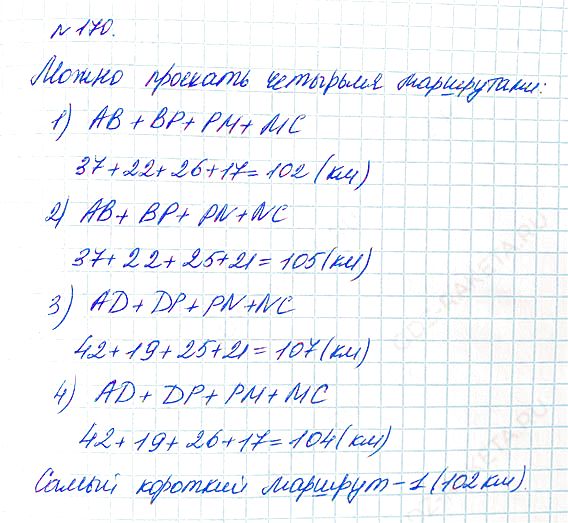 № 170.
Можно проехать четырьмя маршрутами:
1) AB + BP + PM + MC
37 + 22 + 26 + 17 = 102 (км)
2) AB + BP + PN + NC
37 + 22 + 25 + 21 = 105 (км)
3) AD + DP + PN + NC
42 + 19 + 25 + 21 = 107 (км)
4) AD + DP + PM + MC
42 + 19 + 26 + 17 = 104 (км)
Самый короткий маршрут - 1 (102 км).